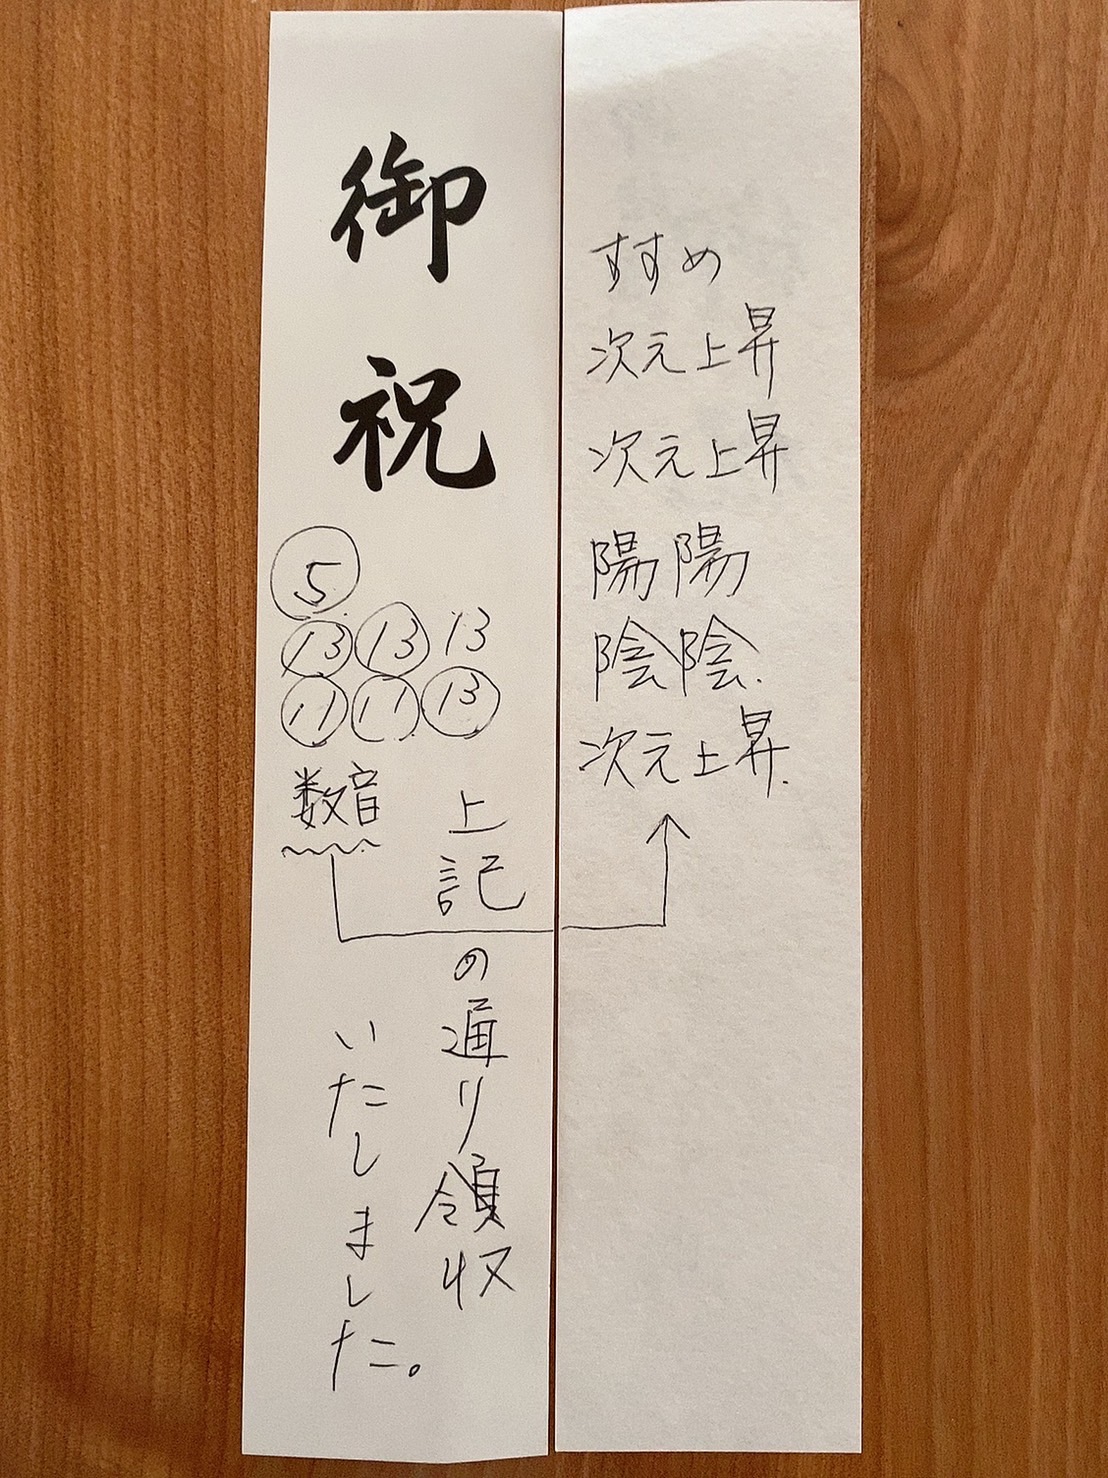 御祝
⑤
⑬⑬13
⑪⑪⑬
数音
上記の通り領収
いたしました。
すすめ
次元上昇
次元上昇
陽陽
陰陰
次元上昇